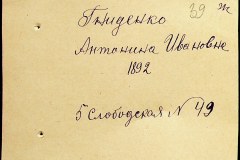 39 ж
Гниденко
Антонина Ивановна
1892
5 Слободская, N 49